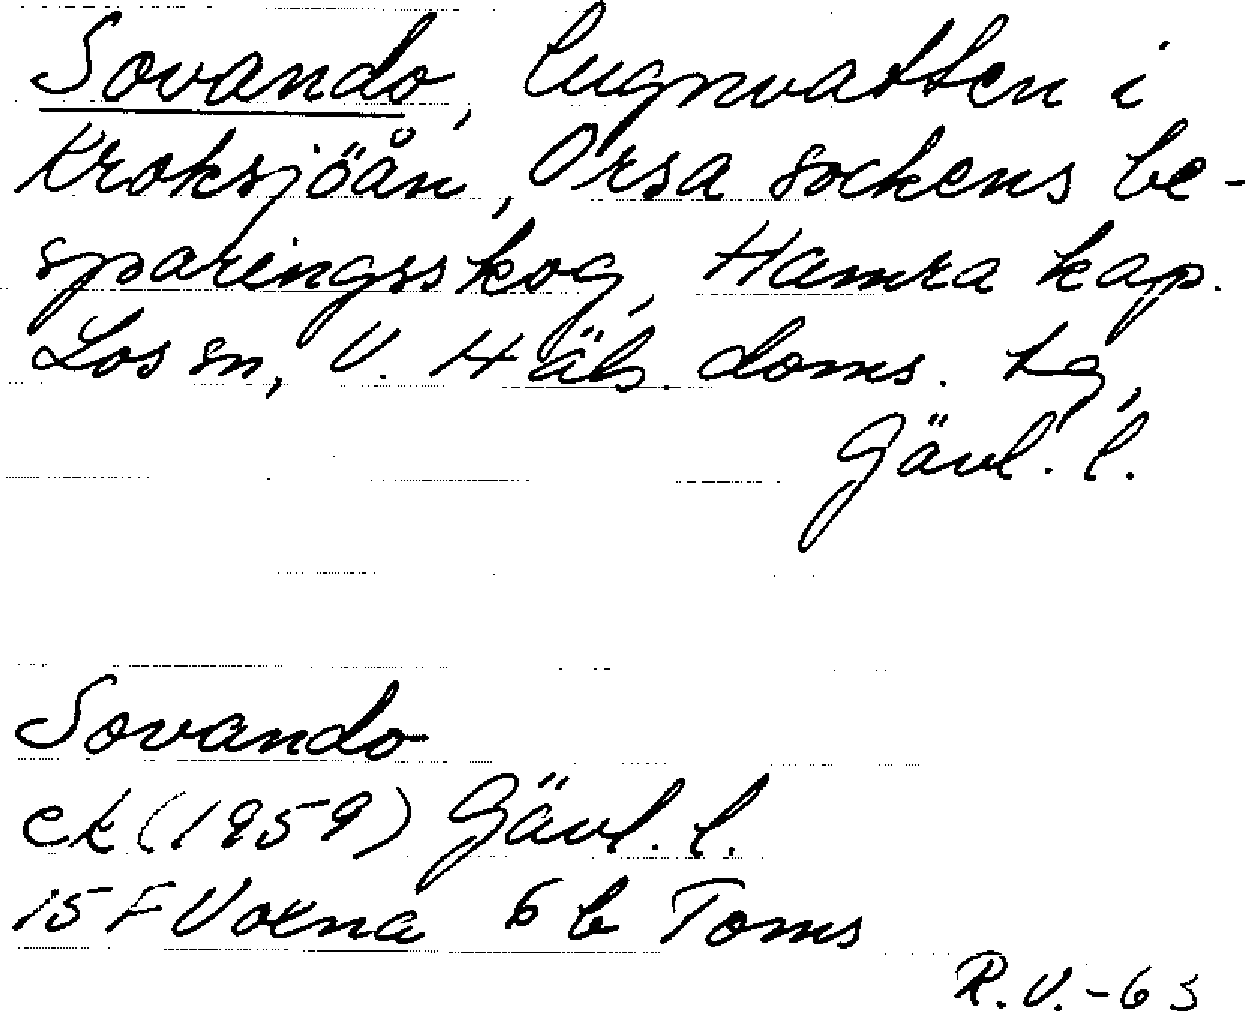 Sovando, lugnvatten i
Kroksjöån, Orsa sockens be-
sparingsskog, Hamra kap.
Los sn, V. Häls. doms. tg,
Gävl. l.
Sovando
ek (1959) Gävl. l.
15 F Voxna 6 b Toms
R. V. - 63